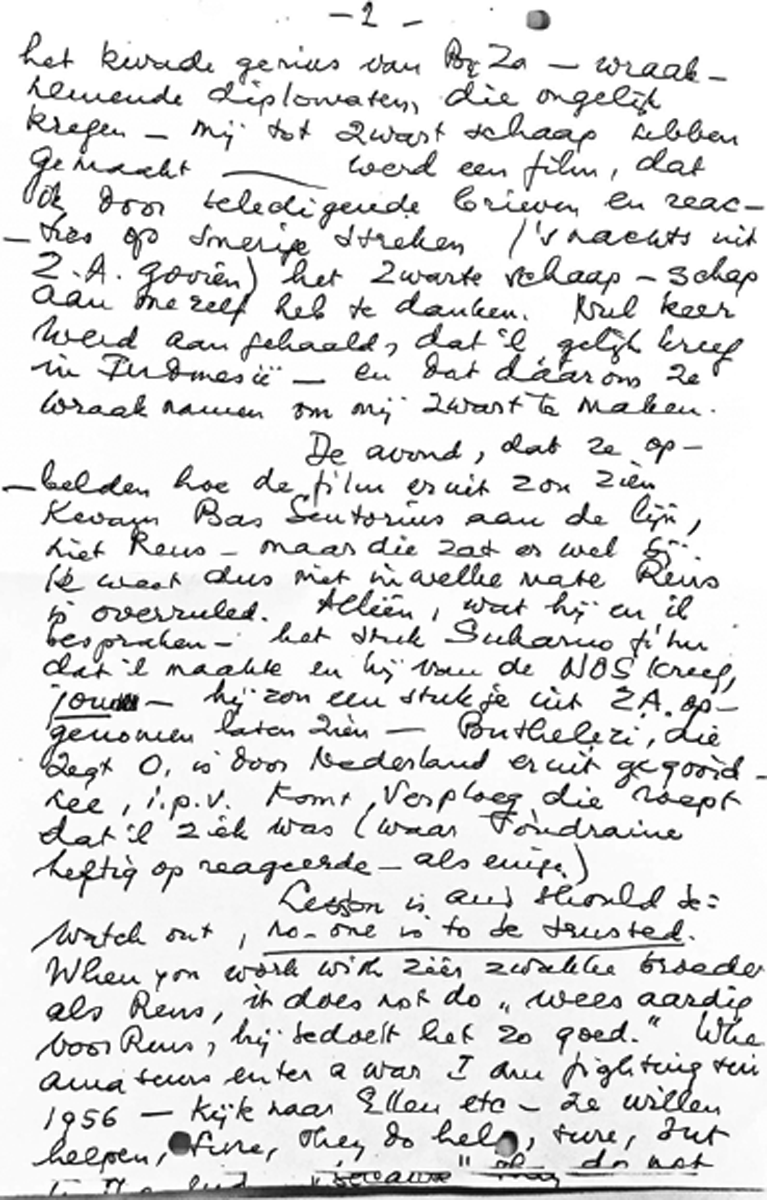 - 2 -
het kwade genius van BuZa - wraak-
nemende diplomaten, die ongelijk
kregen - mij tot zwart schaap hebben
gemaakt — werd een film, dat
ik door beledigende brieven en reac-
ties op smerige streken ('s nachts uit
Z.A. gooiën) het zwarte schaap-schap
aan mezelf heb te danken. Nul keer
werd aangehaald, dat 'k gelijk kreeg
in Indonesië - en dat dáárom ze
wraak namen om mij zwart te maken.
De avond, dat ze op-
belden hoe de film eruit zou zien
kwam Bas Sentorius aan de lijn,
niet Rens - maar die zat er wel bij.
Ik weet dus niet in welke mate Rens
is overruled. Alléén, wat hij en ik
bespraken - het stuk Sukarno film
dat 'k maakte en hij van de NOS kreeg,
hij zou een stukje uit Z.A. op-
genomen laten zien - Buthelezi, die
zegt O. is door Nederland eruit gegooid -
nee, i.p.v. komt Verploeg die roept
dat 'k ziek was (waar Foudraine
heftig op reageerde - als enige)
Lesson is and should be:
Watch out, no-one is to be trusted.
When you work with zéér zwakke broeder
als Rens, it does not do "wees aardig
voor Rens, hij bedoelt het zo goed." Whe
amateurs enter a war I am fighting sin
1956 - kijk naar Ellen etc - ze willen
helpen, sure, they do help, sure, but
do not